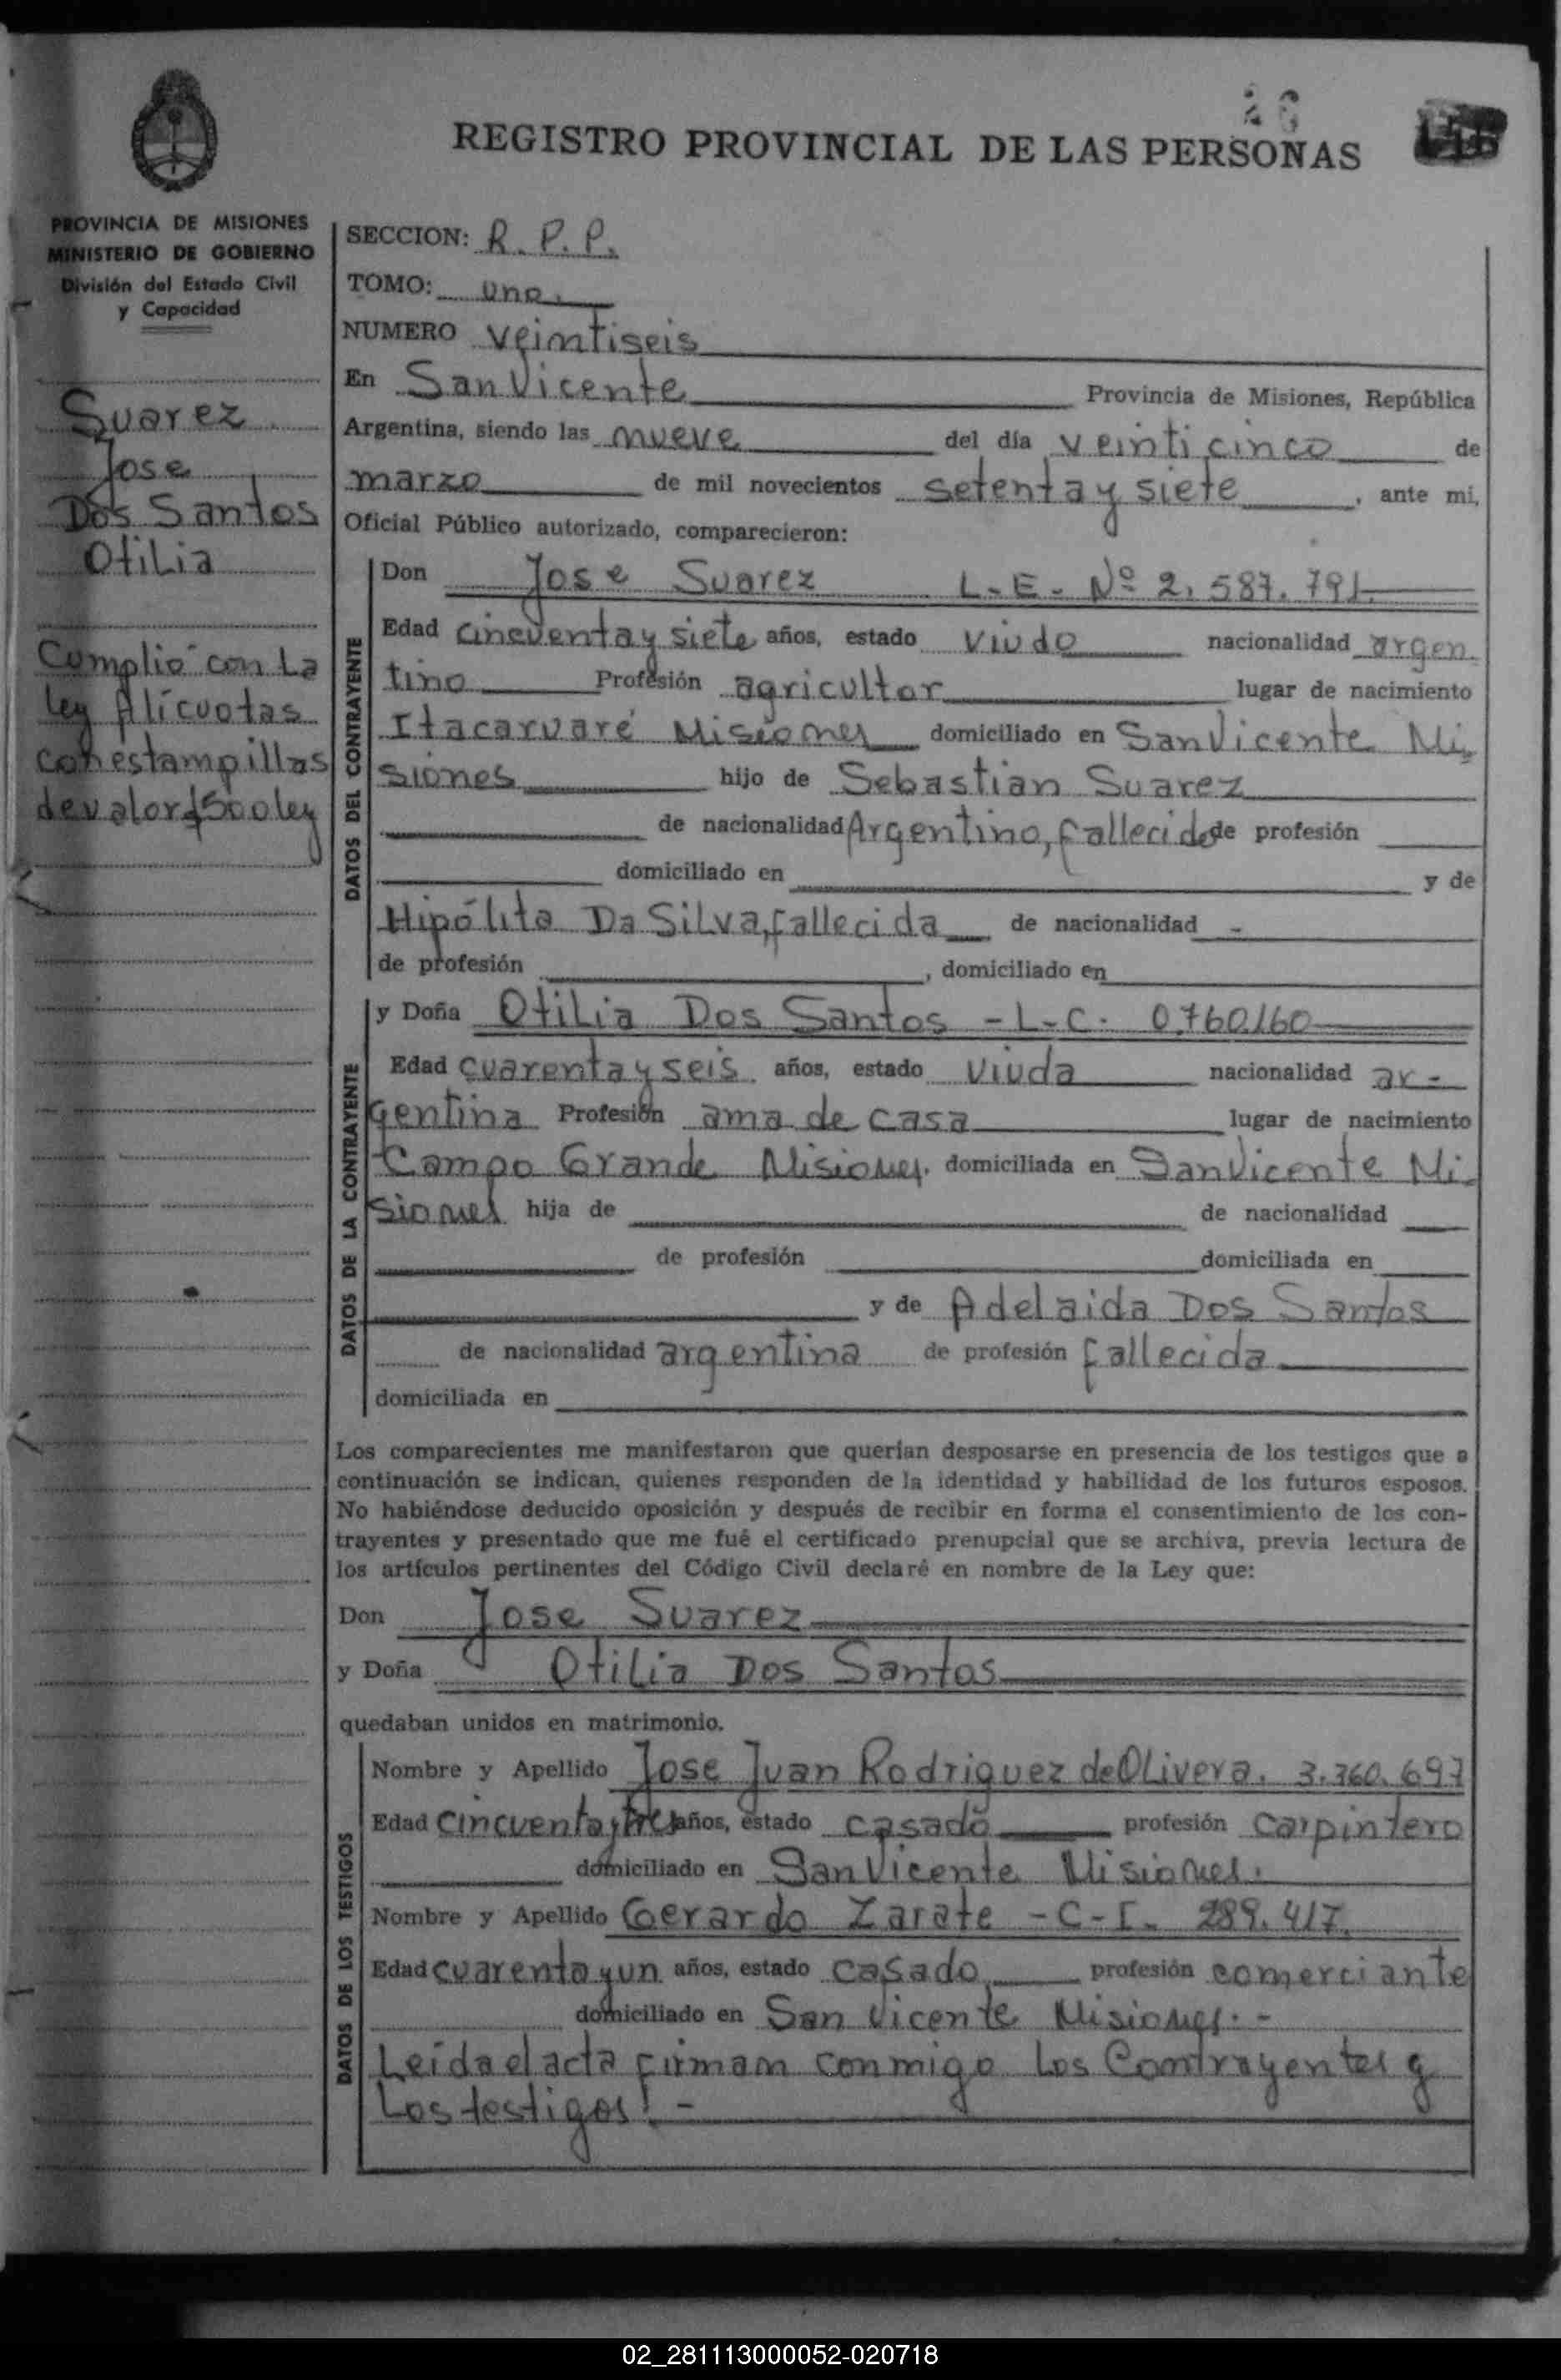 26
REGISTRO PROVINCIAL DE LAS PERSONAS
PROVINCIA DE MISIONES
MINISTERIO DE GOBIERNO
División del Estado Civil
y Capacidad
Suarez
Jose
Dos Santos
Otilia
Cumplio con La
ley Alícuotas
con estampillas
de valor $500 ley
SECCION: R. P. P.
TOMO: uno.
NUMERO veintiseis
En San Vicente Provincia de Misiones, República
Argentina, siendo las nueve del día veinticinco de
marzo de mil novecientos setenta y siete, ante mi,
Oficial Público autorizado, comparecieron:
DATOS DEL CONTRAYENTE
Don Jose Suarez L.E. Nº 2.587.791
Edad cincuenta y siete años, estado viudo nacionalidad argen
tino Profesión agricultor lugar de nacimiento
Itacaruaré Misiones domiciliado en San Vicente Mi
siones hijo de Sebastian Suarez
de nacionalidad Argentino, fallecido de profesión
domiciliado en y de
Hipólita Da Silva, fallecida de nacionalidad -
de profesión , domiciliado en
DATOS DE LA CONTRAYENTE
y Doña Otilia Dos Santos - L.C. 0.760.160
Edad cuarenta y seis años, estado viuda nacionalidad ar-
gentina Profesión ama de casa lugar de nacimiento
Campo Grande Misiones. domiciliada en San Vicente Mi-
siones hija de de nacionalidad
de profesión domiciliada en
y de Adelaida Dos Santos
de nacionalidad argentina de profesión fallecida
domiciliada en
Los comparecientes me manifestaron que querían desposarse en presencia de los testigos que a
continuación se indican, quienes responden de la identidad y habilidad de los futuros esposos.
No habiéndose deducido oposición y después de recibir en forma el consentimiento de los con-
trayentes y presentado que me fué el certificado prenupcial que se archiva, previa lectura de
los artículos pertinentes del Código Civil declaré en nombre de la Ley que:
Don Jose Suarez
y Doña Otilia Dos Santos
quedaban unidos en matrimonio.
DATOS DE LOS TESTIGOS
Nombre y Apellido Jose Juan Rodriguez de Olivera. 3.360.697
Edad cincuenta y tres años, estado casado profesión carpintero
domiciliado en San Vicente Misiones.
Nombre y Apellido Gerardo Zarate - C-I. 289.417
Edad cuarenta y un años, estado casado profesión comerciante
domiciliado en San Vicente Misiones.-
Leida el acta firman conmigo los Contrayentes y
Los testigos.-
02_281113000052-020718